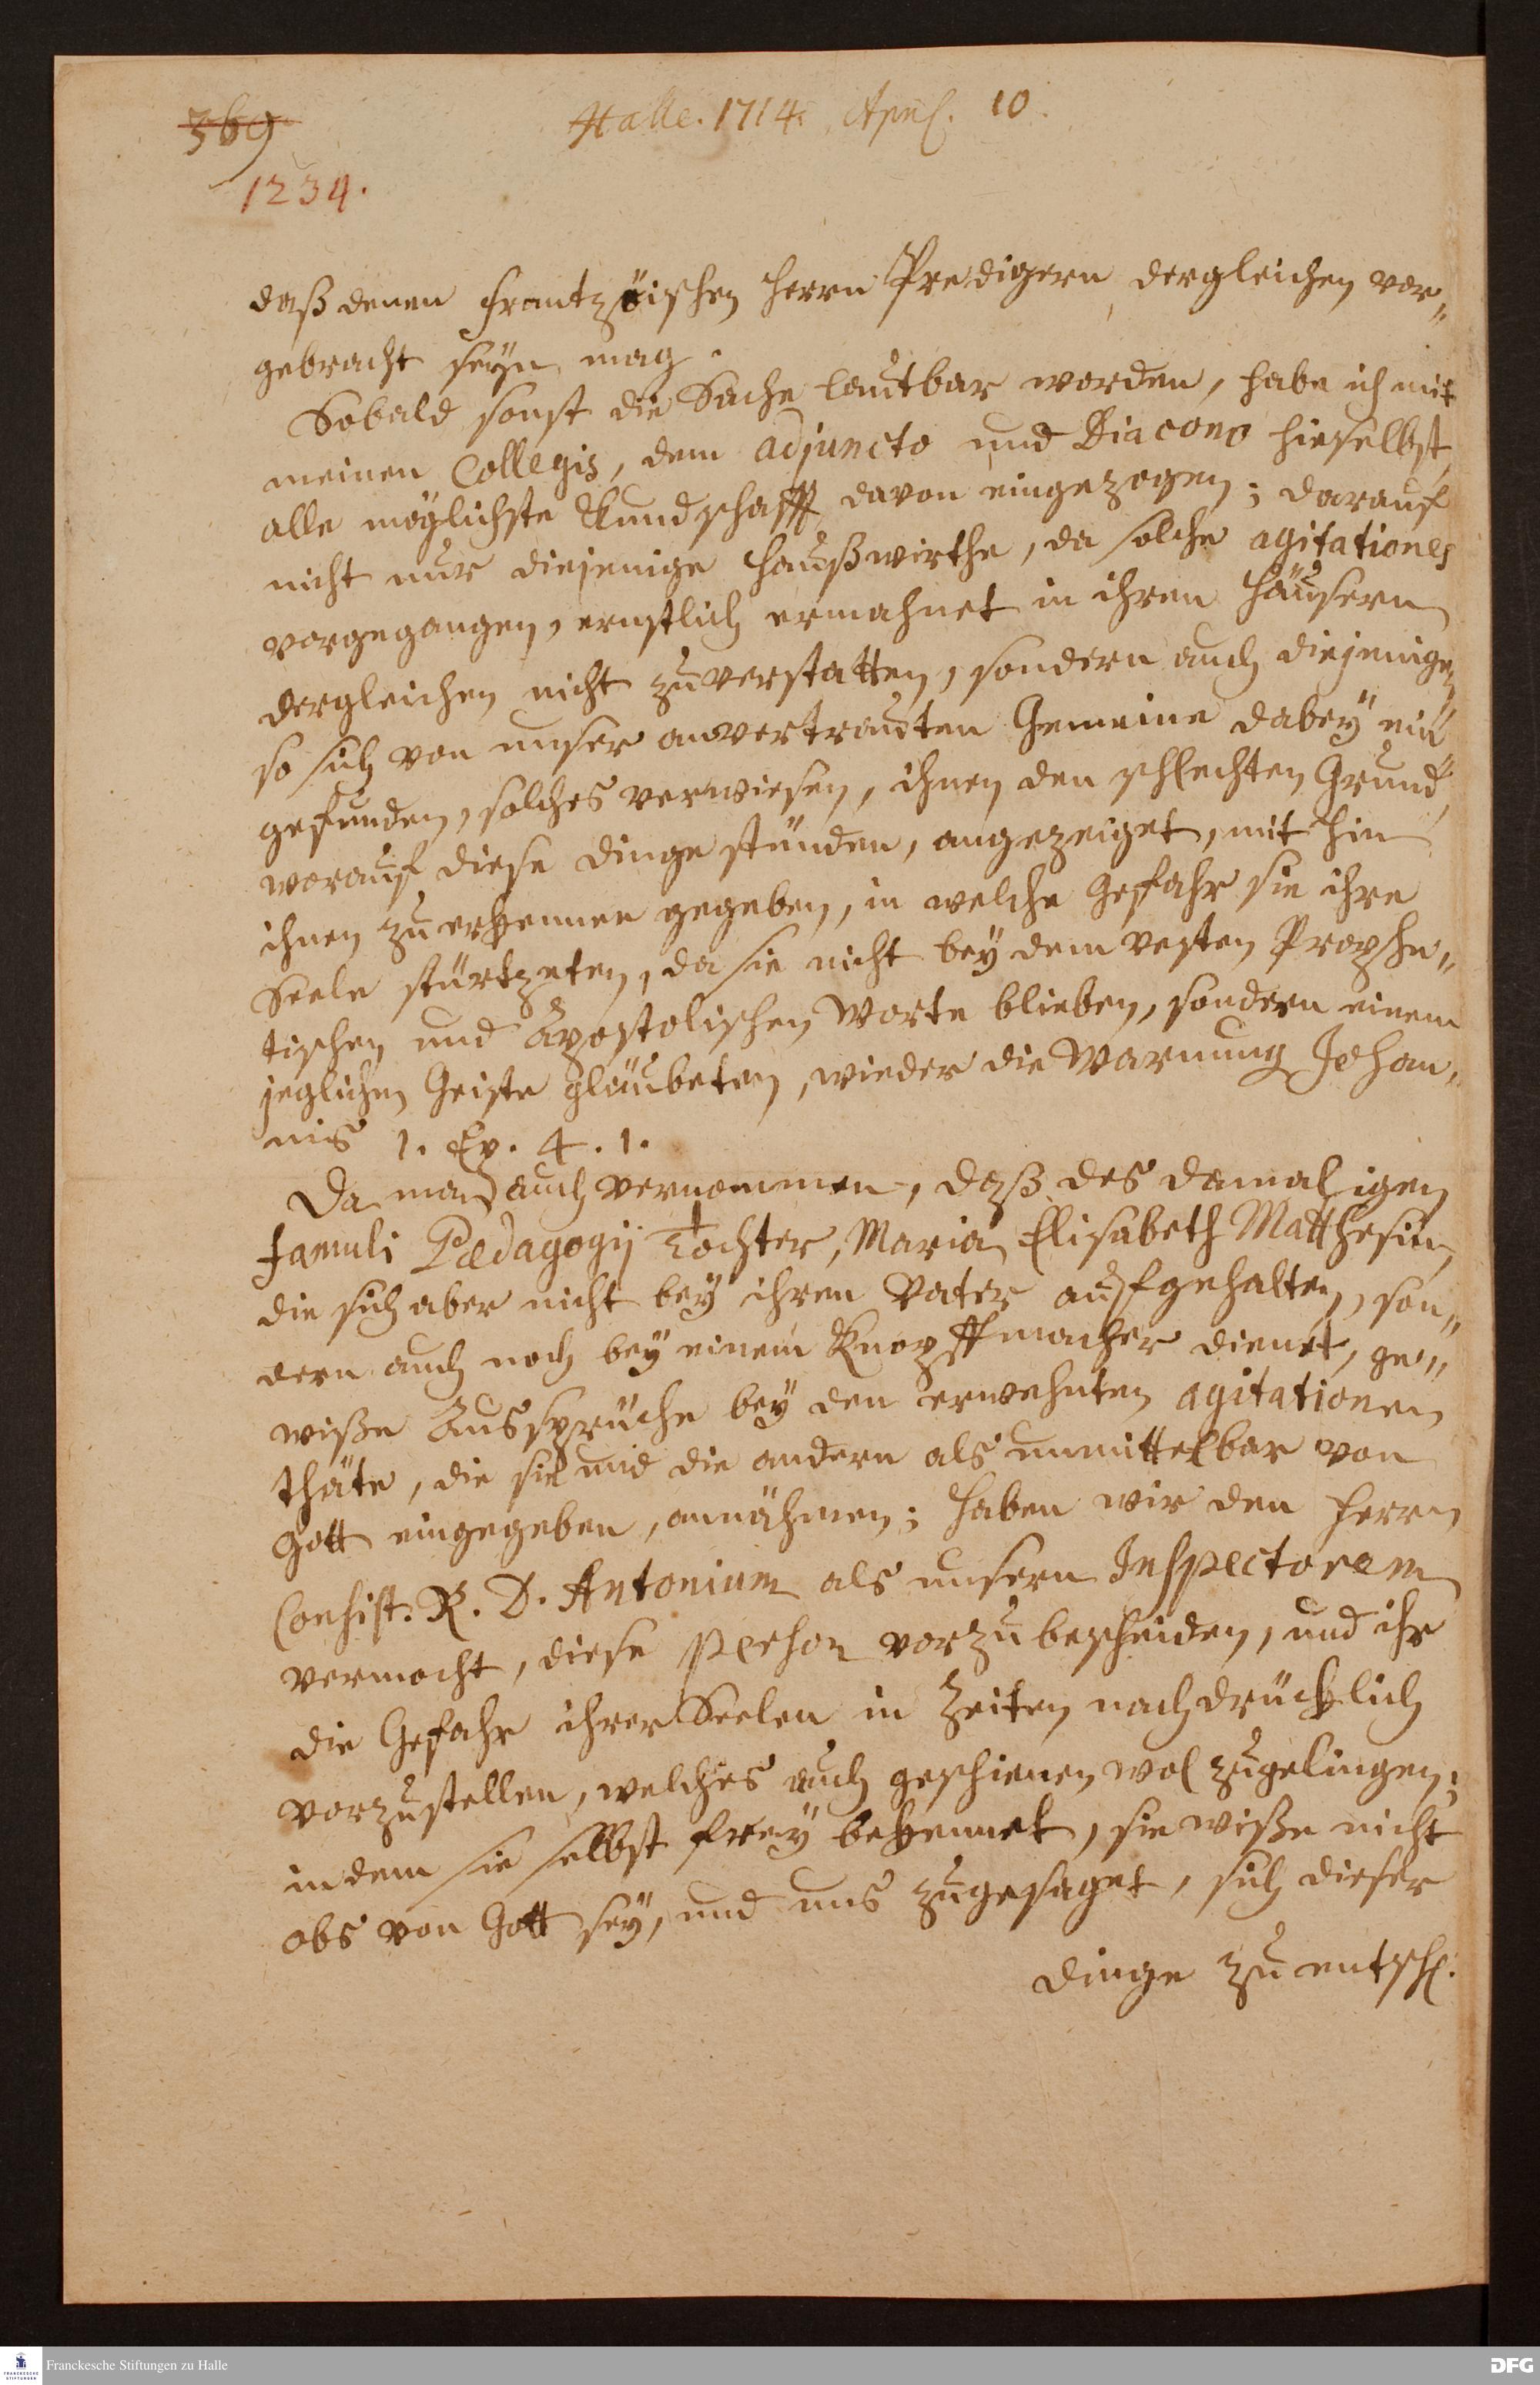 369
Halle. 1714. April. 10.
1234.
daß denen Frantzöischen Herrn Predigern dergleichen vor„
gebracht seyn mag.
Sobald sonst die Sache lautbar worden, habe ich mit
meinen Collegis, dem Adjuncto und Diacono hieselbst,
alle möglichste Kundschafft davon eingezogen; darauf
nicht nur diejenige Haußwirthe, da solche agitationes
vorgegangen, ernstlich ermahnet in ihren Häusern
dergleichen nicht zuverstatten, sondern auch diejenigen
so sich von unser anvertrauten Gemeine dabey ein„
gefunden, solches verwiesen, ihnen den schlechten Grund,
worauf diese dinge stünden, angezeiget, mit hin
ihnen zuerkennen gegeben, in welche Gefahr sie ihre
Seele stürtzeten, da sie nicht bey dem vesten Prophe„
tischen und Apostolischen Worte blieben, sondern einem
jeglichen Geiste gläubeten, wieder die Warnung Johan„
nis 1. Ep. 4. 1.
Da man auch vernommen, daß des damaligen
famuli Pædagogij Tochter, Maria Elisabeth Matthesin,
die sich aber nicht bey ihren Vater aufgehalten, son„
dern auch noch bey einem Knopffmacher dienet, ge„
wiße Aussprüche bey den erwehnten agitationen
thäte, die sie und die andern als unmittelbar von
Gott eingegeben, annähmen; haben wir den Herrn
Consist. R. D. Antonium als unsern Inspectorem
vermocht, diese Person vorzubescheiden, und ihr
die Gefahr ihrer Seelen in Zeiten nachdrücklich
vorzustellen, welches auch geschienen wol zugelingen;
indem sie selbst frey bekennet, sie wiße nicht
obs von Gott sey, und uns zugesaget, sich dieser
dinge zu entschl.
Franckesche Stiftungen zu Halle
FRANCKESCHE
STIFTUNGEN
DFG